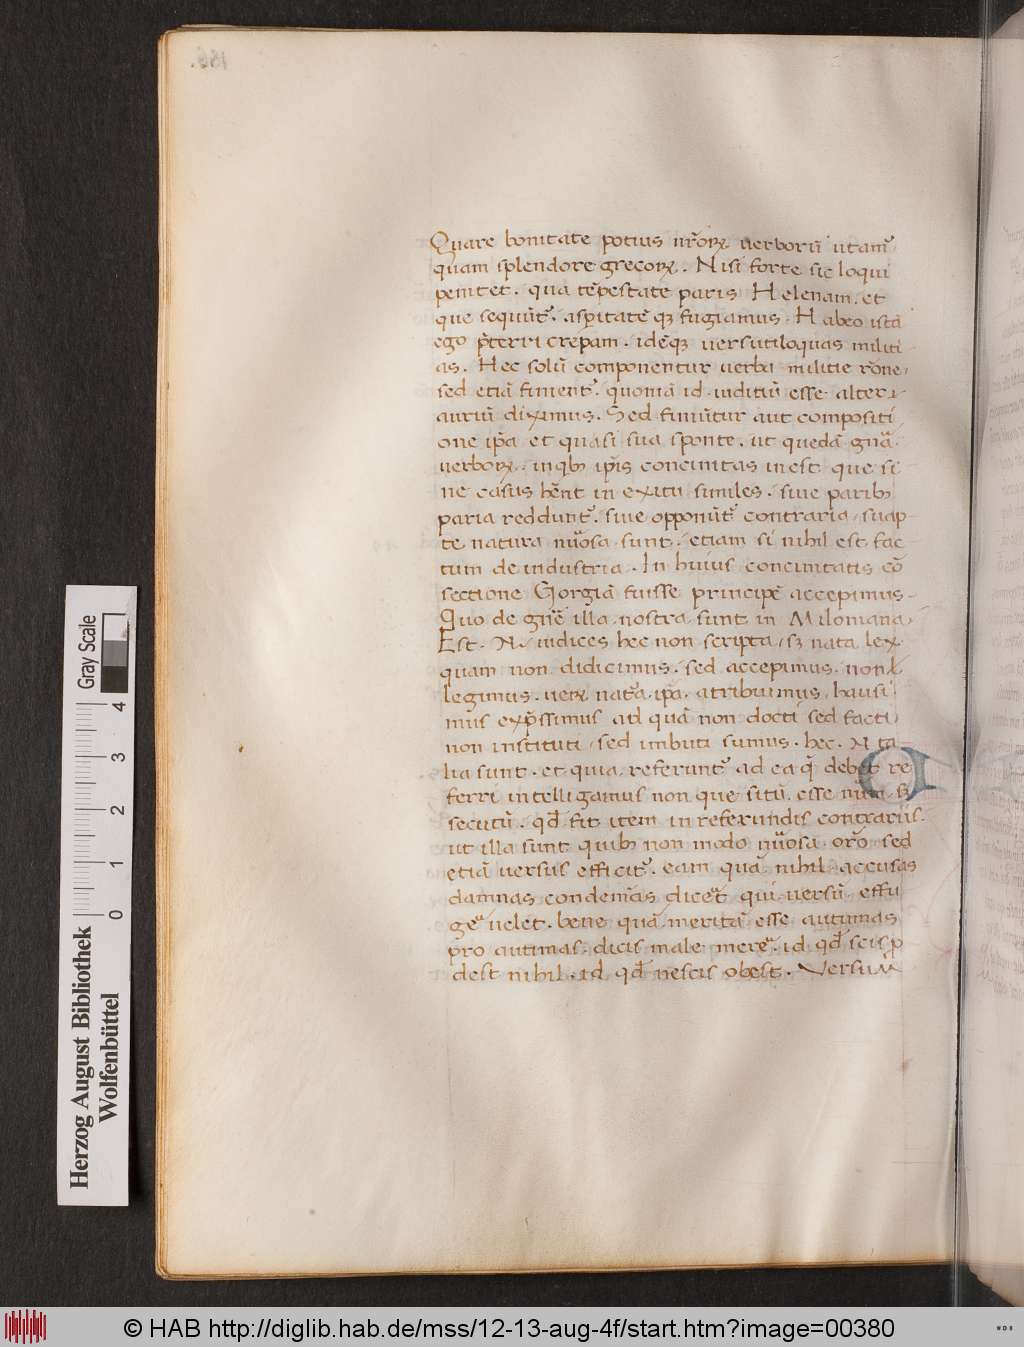 186.
Quare bonitate potius nr̄oꝝ uerborū utam᷑
quam splendore grecoꝝ. Nisi forte sic loqui
penitet. qua tēpestate paris Helenam. et
que sequūt᷑. aspitatē qꝫ fugiamus. Habeo istā
ego p̄terricrepam. idēqꝫ uersutiloquas militi
as. Hec solū componentur uerba militie rōne,
sed etiā finient᷑. quoniā id iuditiū esse alterū
auriū diximus. Sed finiūtur aut compositi
one ip̄a et quasi sua sponte. ut quedā gn̄a
uerboꝝ. in qbꝫ ip̄is concinitas inest que si
ue casus hēnt in exitu similes. siue paribꝫ
paria reddunt᷑. siue opponūt᷑ contraria, suap
te natura nūosa sunt. etiam si nihil est fac
tum de industria. In huius concinitatis cō
sectione Gorgiā fuisse principē accepimus.
Quo de gn̄e illa nostra sunt in Miloniana,
Est. N. iudices hec non scripta, sꝫ nata lex.
quam non didicimus. sed accepimus. non
legimus. ueꝝ nat᷑a ip̄a. atribuimus, hausi
mus exp̄ssimus ad quā non docti sed facti,
non instituti, sed imbuti sumus. hec. N ta
lia sunt. et quia referunt᷑ ad ea q̄ debēt re
ferri intelligamus non que sitū esse nūm sꝫ
secutū. qd̄ fit item in referundis contrariis.
ut illa sunt quibꝫ non modo nūosa orō sed
etiā uersus efficit᷑. eam quā nihil accusas
damnas condemn̄as diceret qui uersū effu
gere uelet. bene quā meritā esse autumas
pro autimas. dicis male mereri. id qd̄ scis p
dest nihil. id qd̄ nescis obest. Versum
Gray Scale
0 1 2 3 4
Herzog August Bibliothek
Wolfenbüttel
© HAB http://diglib.hab.de/mss/12-13-aug-4f/start.htm?image=00380